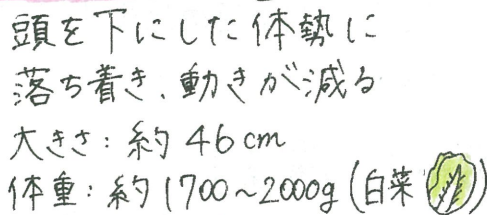 頭を下にした体勢に
落ち着き、動きが減る
大きさ：約46cm
体重：約1700～2000g(白菜)